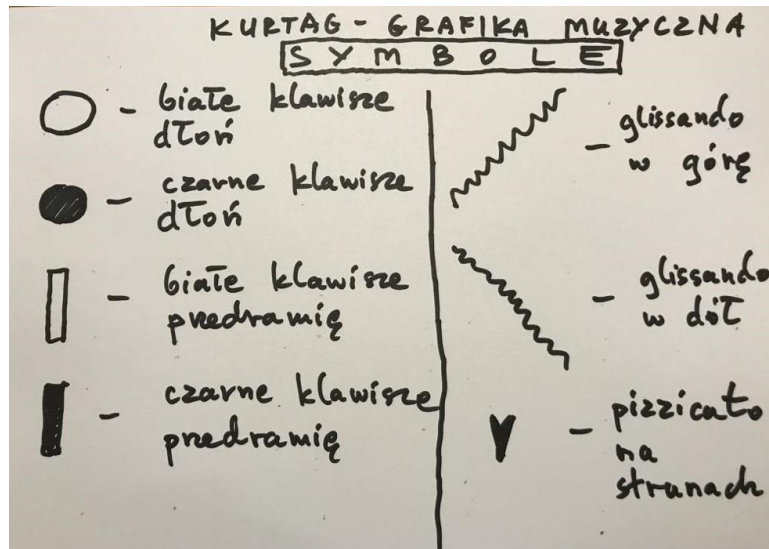 KURTAG - GRAFIKA MUZYCZNA
SYMBOLE
- białe klawisze
dłoń
- czarne klawisze
dłoń
- białe klawisze
przedramię
- czarne klawisze
przedramię
- glissando
w górę
- glissando
w dół
- pizzicato
na
strunach